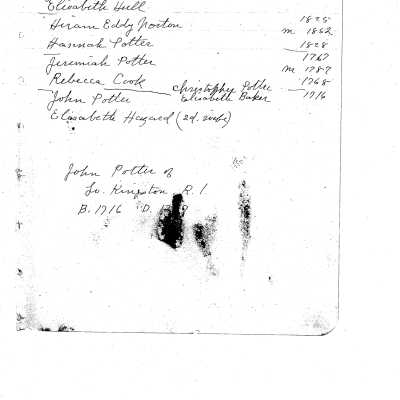 Elisabeth Hull
Hiram Eddy Norton 1825
m 1852
Hannah Potter 1828
Jeremiah Potter 1767
m 1787
Rebecca Cook 1768
Christopher Potter
John Potter Elisabeth Baker 1716
Elisabeth Hazard (2d. wife)
John Potter of
So. Kingston R. I
B. 1716 D.